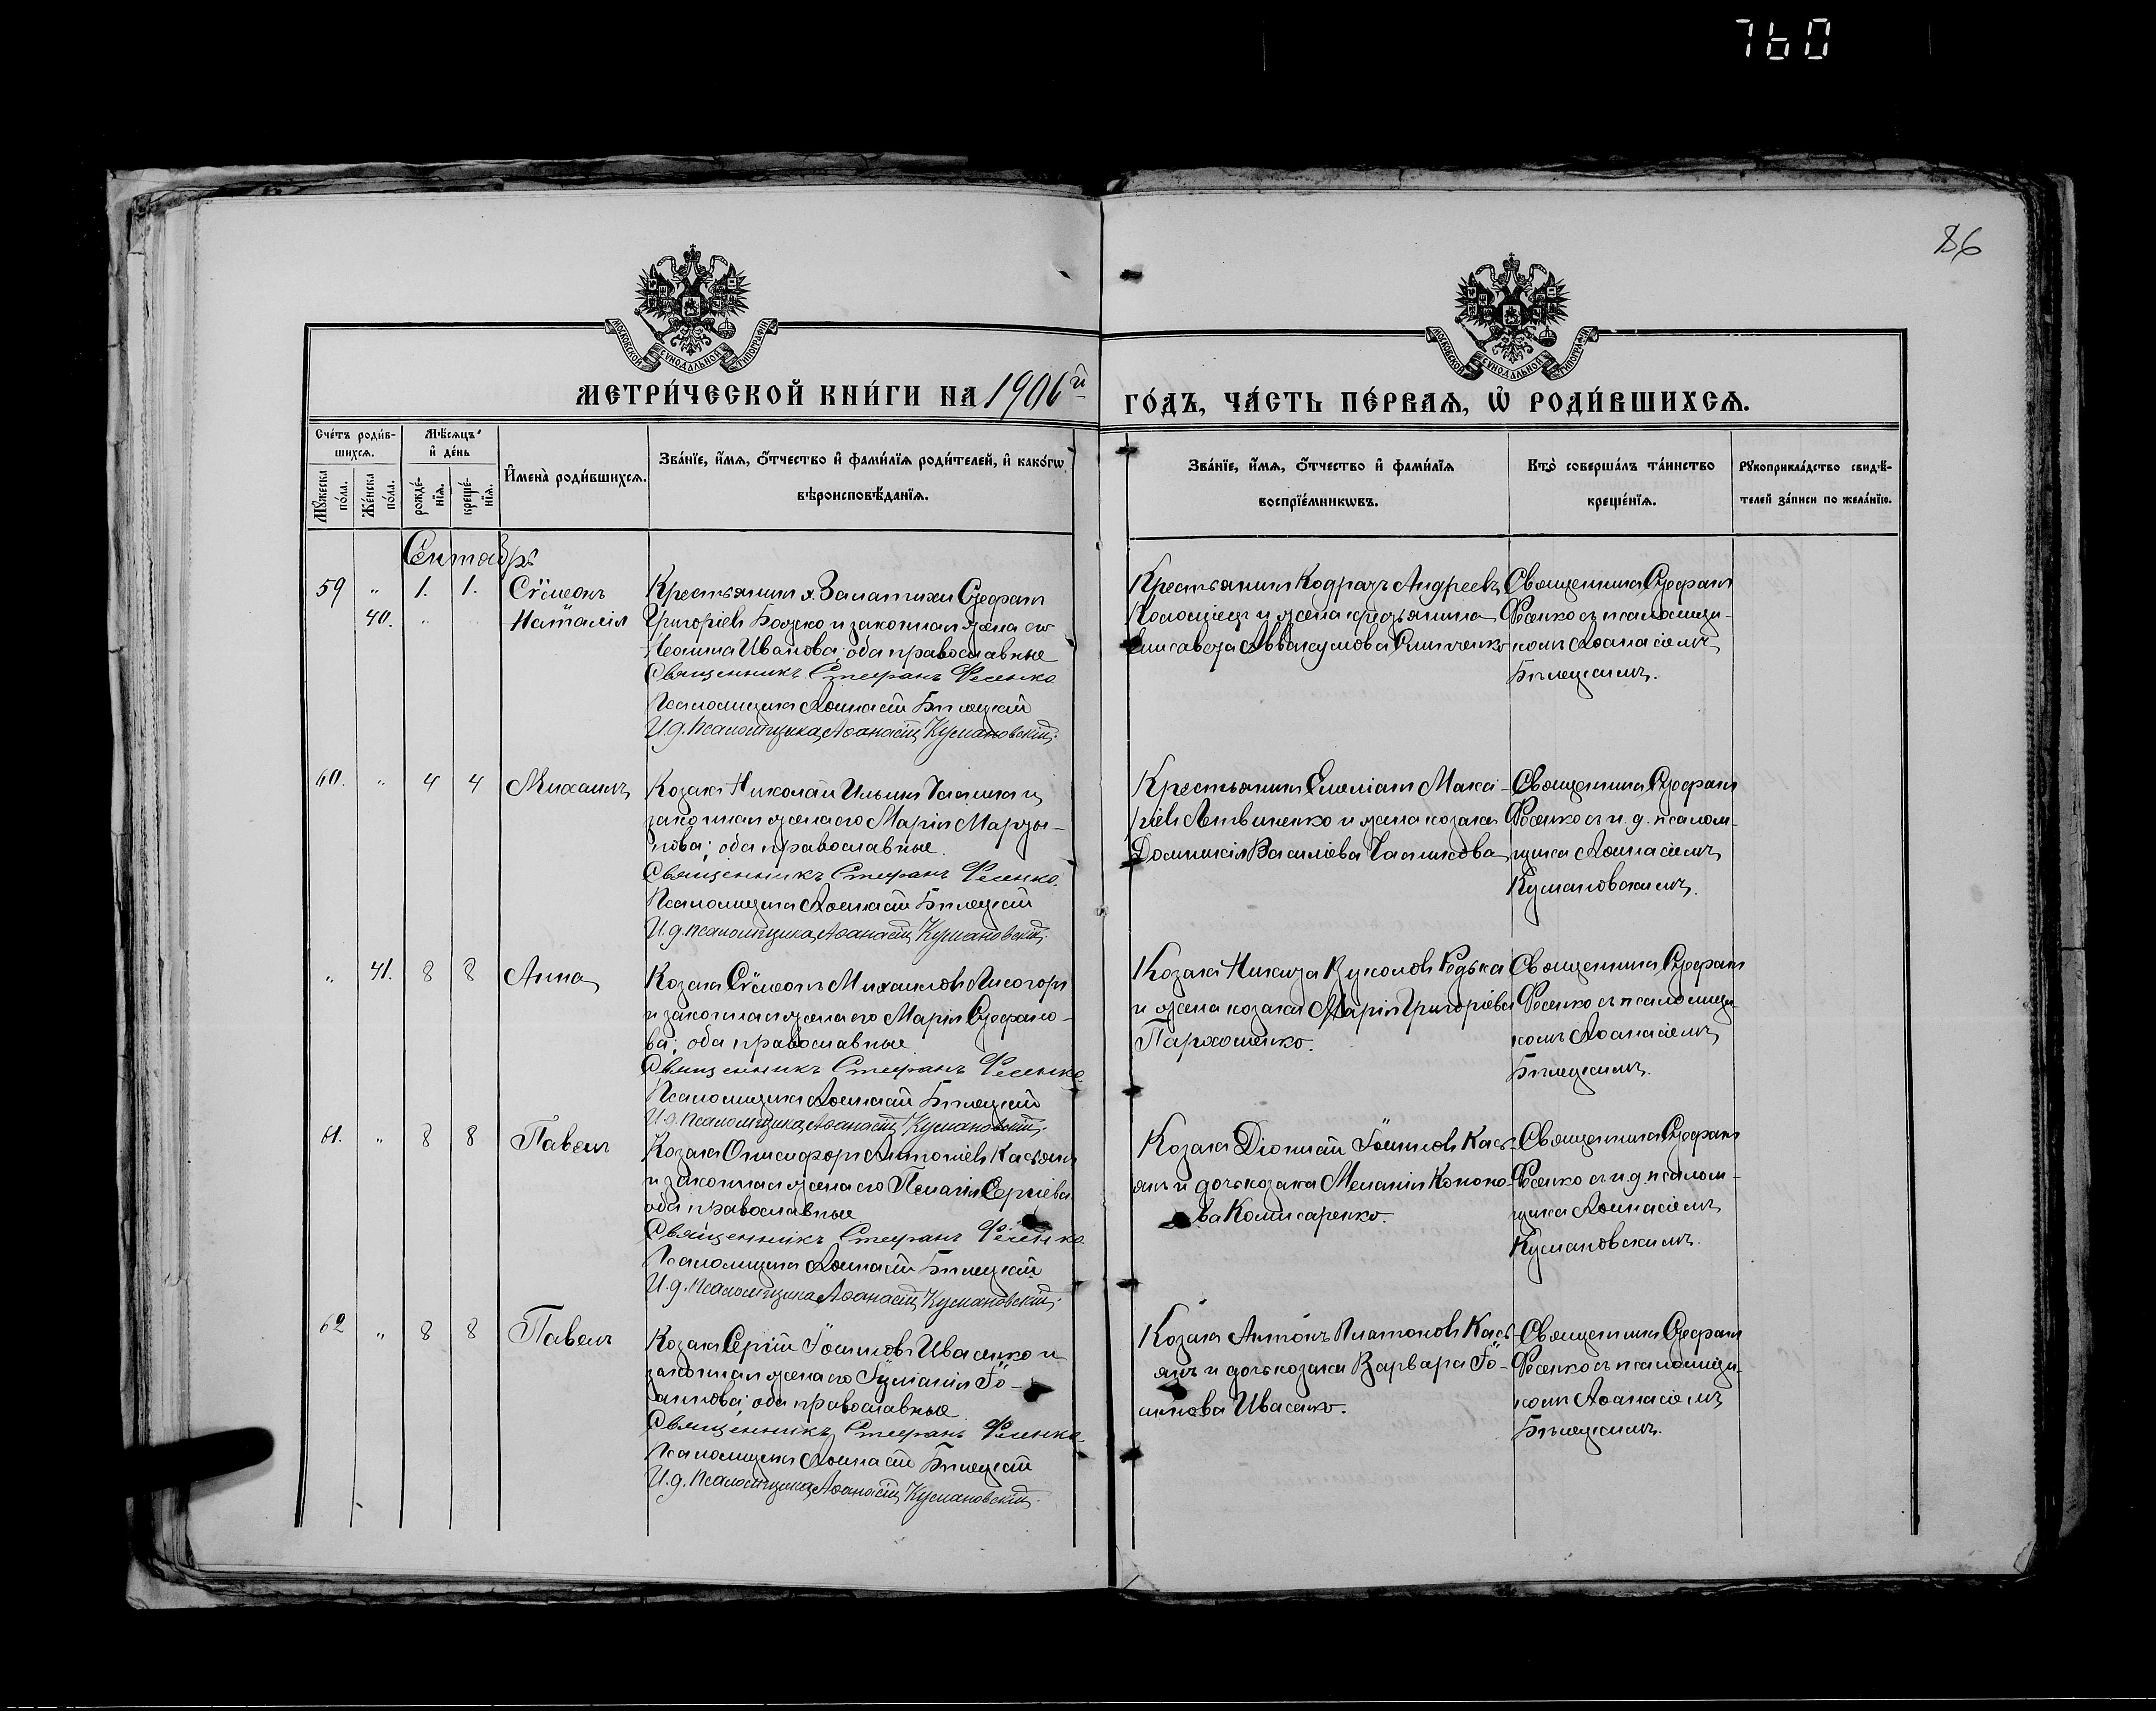 760
86
МОСКОВСКОЙ СѴНОДАЛЬНОЙ ТИПОГРАФІИ
МОСКОВСКОЙ СѴНОДАЛЬНОЙ ТИПОГРАФІИ
МЕТРИ́ЧЕСКОЙ КНИ́ГИ НА 1906й
ГО́ДЪ, ЧА́СТЬ ПЕ́РВАѦ, Ѡ҆ РОДИ́ВШИХСѦ.
Сче́тъ роди́в-
шихсѧ.
Мꙋжеска по́ла.
Же́нска по́ла.
Мѣ́сѧцъ и҆ де́нь
рожде́-нїѧ.
креще́-нїѧ.
И҆мена̀ роди́вшихсѧ.
Зва́нїе, и҆́мѧ, ѻ҆́тчество и҆ фами́лїѧ роди́телей, и҆ како́гѡ
вѣроисповѣ́данїѧ.
Зва́нїе, и҆́мѧ, ѻ҆́тчество и҆ фами́лїѧ
воспрїе́мникѡвъ.
Кто̀ соверша́лъ та́инство
креще́нїѧ.
Рꙋкоприкла́дство свидѣ́-
телей за́писи по жела́нїю.
Сентябрь
59 " 1. 1. Сѵмеонъ
40. " Наталія
Крестьянинъ х. Стефанъ
Григоріевъ и законная жена его
Иванова; оба православные
Священникъ Стефанъ Фесенко
Псаломщикъ Аѳанасій Билецкій
И.д. псаломщика Аѳанасій Кумановскій.
Крестьянинъ Кодратъ Андреевъ
и жена крестьянина
Елисавета Аввакумова
Священникъ Стефанъ
Фесенко съ псаломщи-
комъ Аѳанасіемъ
Билецкимъ.
60. " 4 4 Михаилъ
Козакъ Николай Ильинъ и
законная жена его Марія Марты-
нова; оба православные.
Священникъ Стефанъ Фесенко.
Псаломщикъ Аѳанасій Билецкій
И.д. псаломщика Аѳанасій Кумановскій.
Крестьянинъ Емеліанъ Макси-
Литвиненко и жена козака
Домникія Василіева
Священникъ Стефанъ
Фесенко съ и. д. псалом-
щика Аѳанасіемъ
Кумановскимъ.
" 41. 8 8 Анна
Козакъ Сѵмеонъ Михаиловъ Лисогоръ
и законная жена его Марія Стефано-
ва; оба православные
Священникъ Стефанъ Фесенко.
Псаломщикъ Аѳанасій Билецкій
И.д. псаломщика Аѳанасій Кумановскій.
Козакъ Никита Вуколовъ Редька
и жена козака Марія Григоріева
Пархоменко.
Священникъ Стефанъ
Фесенко съ псаломщи-
комъ Аѳанасіемъ
Билецкимъ.
61. " 8 8 Павелъ
Козакъ Онисифоръ Антоніевъ Касьянъ
и законная жена его Пелагія Сергіева
оба православные
Священникъ Стефанъ Фесенко
Псаломщикъ Аѳанасій Билецкій
И.д. псаломщика Аѳанасій Кумановскій.
Козакъ Діонисій Іоанновъ Кась-
янъ и дочь козака Меланія Кононо-
ва Комисаренко.
Священникъ Стефанъ
Фесенко съ и.д. псалом-
щика Аѳанасіемъ
Кумановскимъ.
62 " 8 8 Павелъ
Козакъ Сергій Іоанновъ Ивасенко и
законная жена его Іуліанія Іо-
аннова; оба православные.
Священникъ Стефанъ Фесенко.
Псаломщикъ Аѳанасій Билецкій
И.д. псаломщика Аѳанасій Кумановскій.
Козакъ Антонъ Платоновъ Кась-
янъ и дочь козака Варвара Іо-
аннова Ивасенко.
Священникъ Стефанъ
Фесенко съ псаломщи-
комъ Аѳанасіемъ
Билецкимъ.